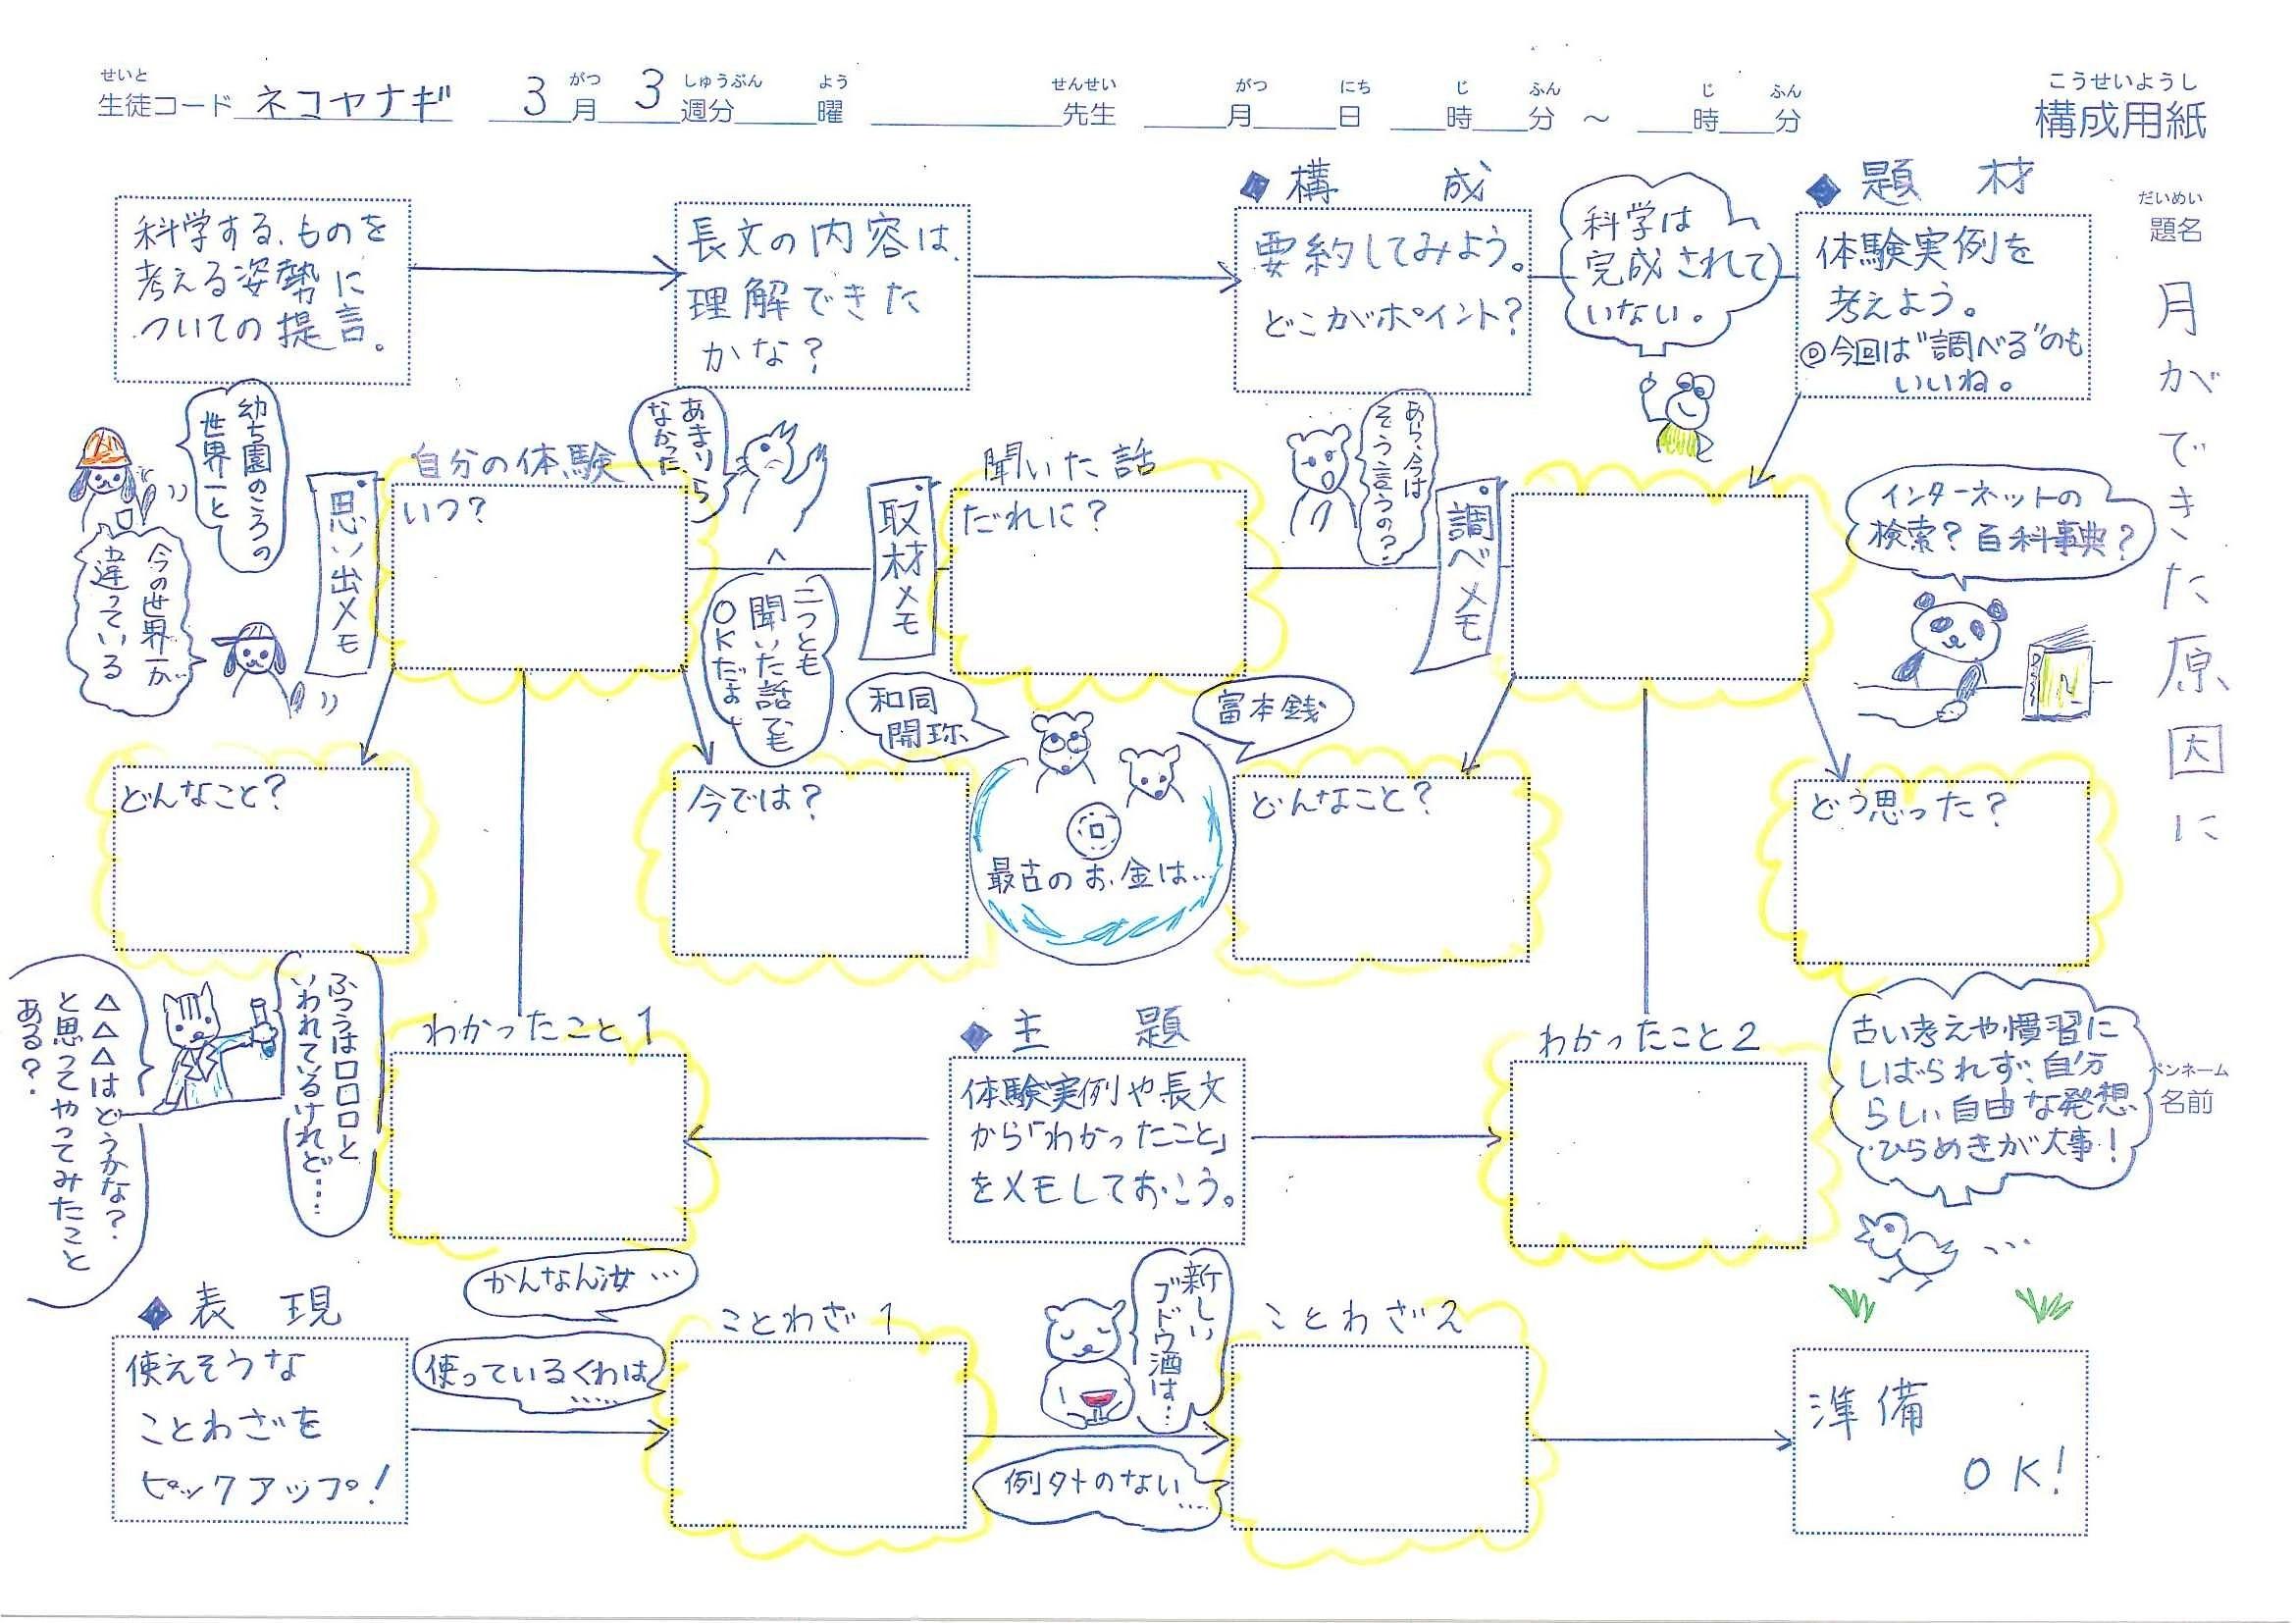 せいと
生徒コード ネコヤナギ
がつ しゅうぶん よう
3月 3週分 曜
せんせい
先生
がつ にち じ ふん じ ふん
月 日 時 分 ～ 時 分
こうせいようし
構成用紙
だいめい
題名
月ができた原因に
科学する、ものを
考える姿勢に
ついての提言。
長文の内容は、
理解できた
かな？
◆構 成
要約してみよう。
どこがポイント？
科学は
完成されて
いない。
◆題 材
体験実例を
考えよう。
◎今回は"調べる"のも
いいね。
幼ち園のころの
世界一と
今の世界一が
違っている
思い出メモ
自分の体験
いつ？
あまりら
なかった、
二つとも
聞いた話でも
OKだよ。
取材メモ
聞いた話
だれに？
あら、今は
そう言うの？
調べメモ
インターネットの
検索？百科事典？
どんなこと？
今では？
和同
開珎
富本銭
最古のお金は…
どんなこと？
どう思った？
ふつうは□□□と
いわれているけれど……
△△△はどうかな？
と思ってやってみたこと
ある？
わかったこと1
◆主 題
体験実例や長文
から「わかったこと」
をメモしておこう。
わかったこと2
古い考えや慣習に
しばられず、自分
らしい自由な発想、
ひらめきが大事！
ペンネーム
名前
◆表 現
使えそうな
ことわざを
ピックアップ！
かんなん汝…
使っているくわは
……
ことわざ1
新しい
ブドウ酒は…
例外のない
……
ことわざ2
準備
OK！